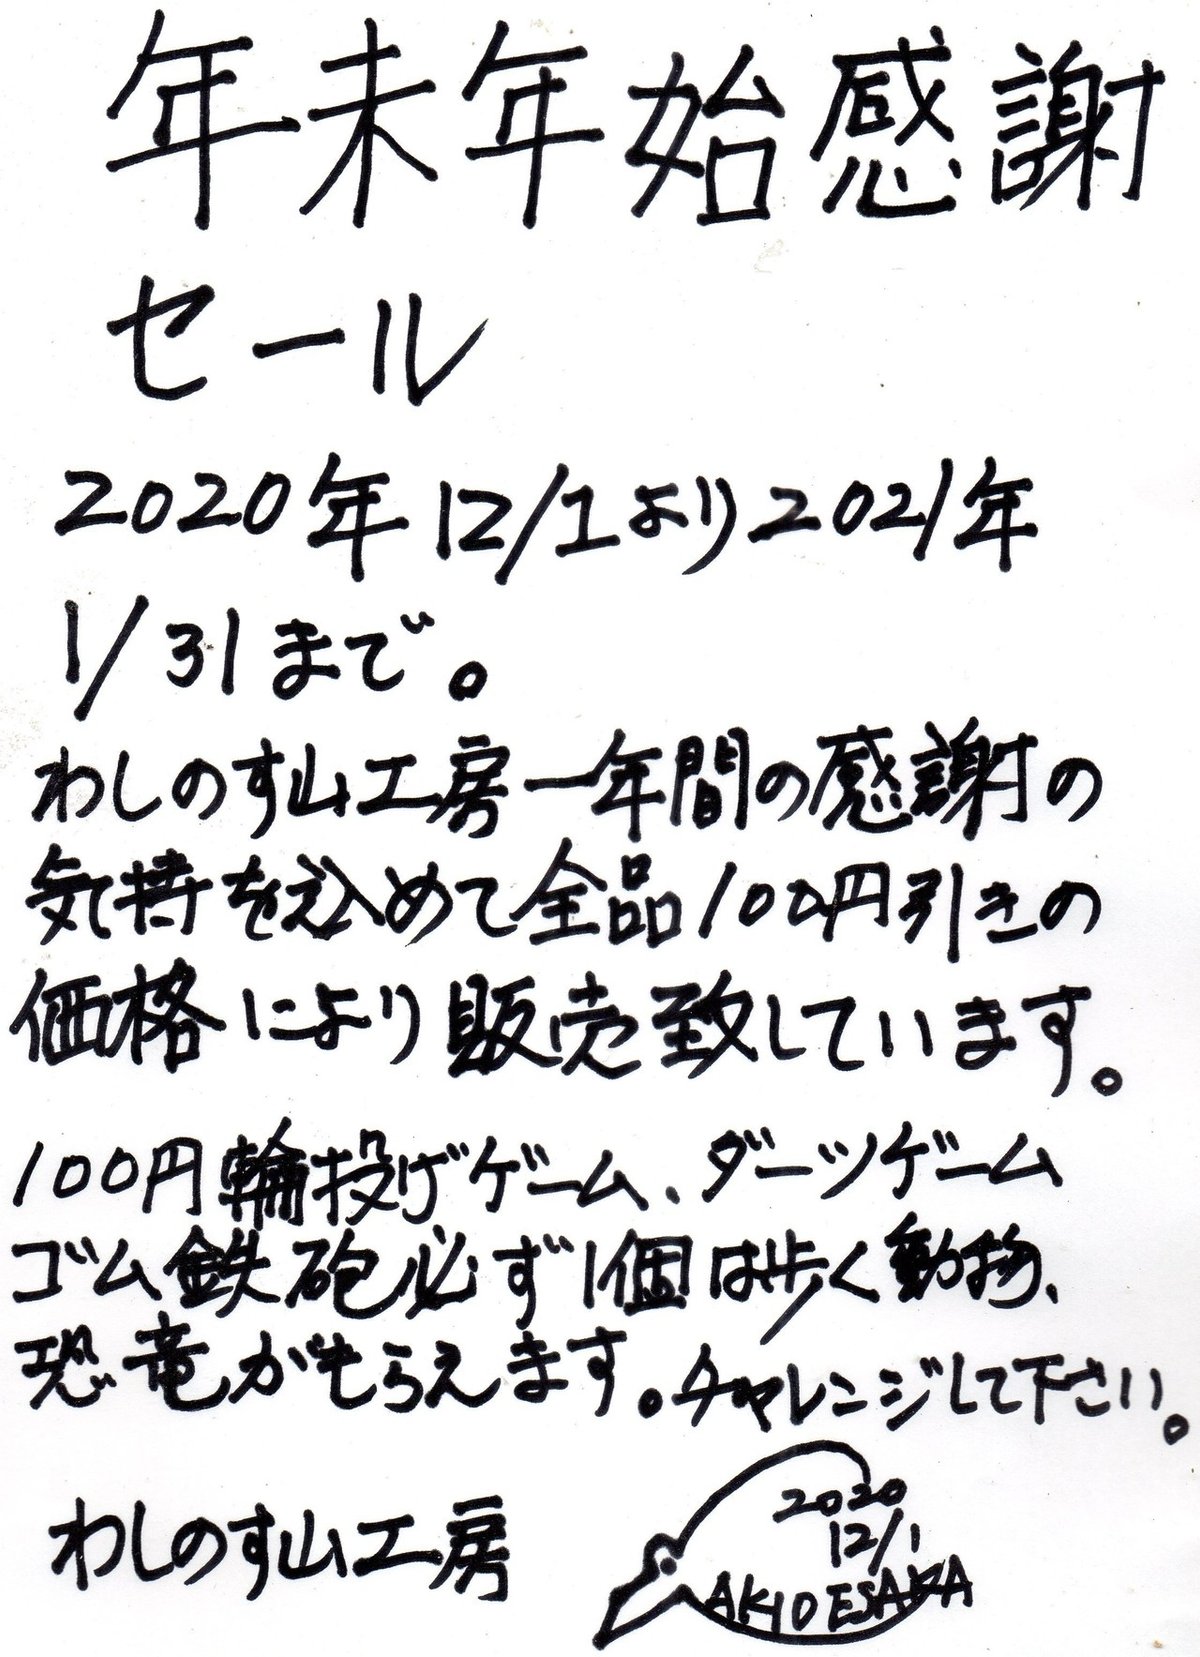 年末年始感謝
セール
2020年12/1より2021年
1/31まで。
わしのす山工房一年間の感謝の
気持を込めて全品100円引きの
価格により販売致しています。
100円輪投げゲーム、ダーツゲーム
ゴム鉄砲必ず1個は歩く動物、
恐竜がもらえます。チャレンジして下さい。
わしのす山工房
2020
12/1
AKIO ESAKA